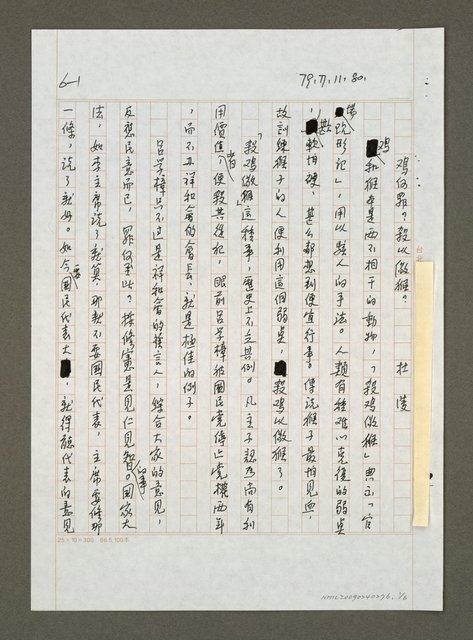 6-1
79.7.11.80.
雞何罪？殺以儆猴？
杜陵
雞和猴本是兩不相干的動物，「殺雞儆猴」典出「官
場現形記」，用以駭人的手法。人類有種難以克復的弱點
，欺軟怕硬，甚么都想到便宜行事。傳說猴子最怕見血，
故訓練猴子的人便利用這個弱點，殺雞以儆猴了。
「殺雞儆猴」這種事，歷史上不乏其例。凡主子認為尚有利
用價值者，便殺其從犯，眼前呂學樟被國民黨停止黨權兩年
，而不及祥和會的會長，就是極佳的例子。
呂學樟只不过是祥和會的發言人，綜合大家的意見，
反應民意而已，罪何至此？按修憲是見仁見智的國家大
法，如李主席說了就算，那就不要國民代表，主席要修那
一條，說了就好。如今要國民代表大，就得聽代表的意見
25×10=300 86.5.100本
NMTL20090240276. 1/6